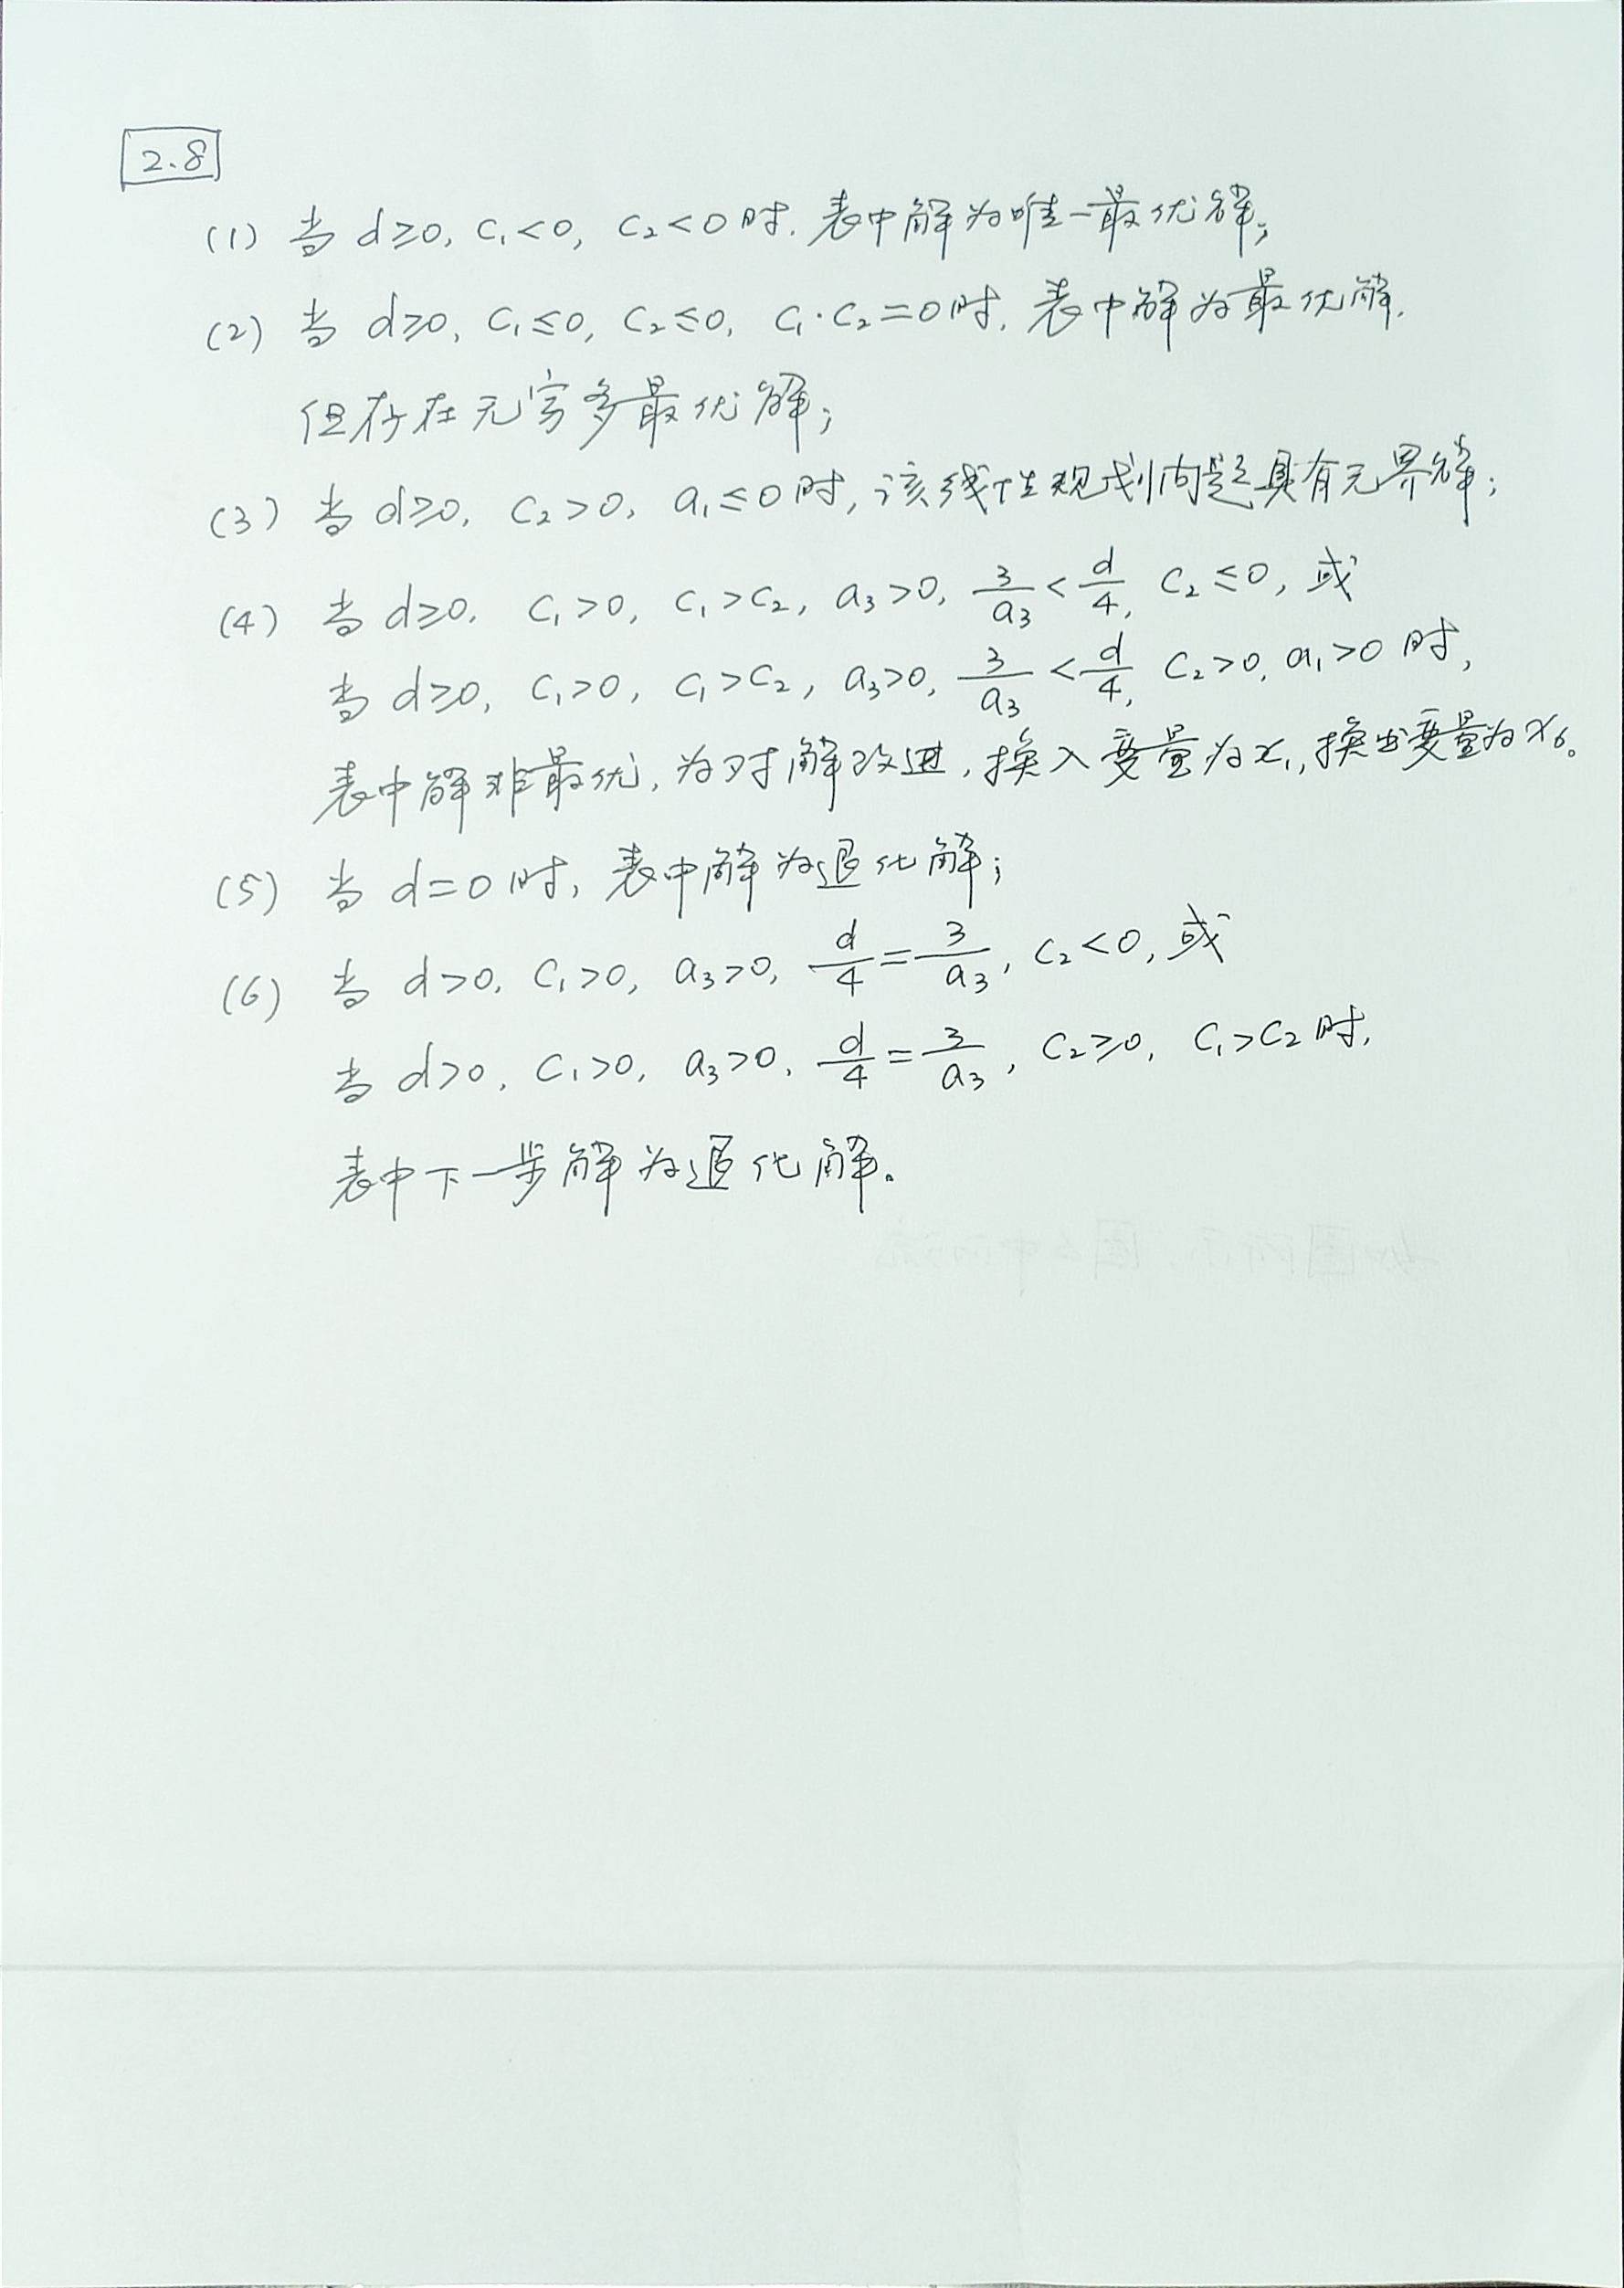 2.8
(1) 当 d≥0, c₁<0, c₂<0时. 表中解为唯一最优解;
(2) 当 d≥0, c₁≤0, c₂≤0, c₁·c₂=0时. 表中解为最优解.
但存在无穷多最优解;
(3) 当 d≥0, c₂>0, a₁≤0时, 该线性规划问题具有无界解;
(4) 当 d≥0. c₁>0, c₁>c₂, a₃>0, 3/a₃<d/4, c₂≤0, 或
当 d≥0, c₁>0, c₁>c₂, a₃>0, 3/a₃<d/4, c₂>0, a₁>0时,
表中解非最优, 为对解改进, 换入变量为x₁, 换出变量为x₆。
(5) 当 d=0时, 表中解为退化解;
(6) 当 d>0, c₁>0, a₃>0, d/4=3/a₃, c₂<0, 或
当 d>0, c₁>0, a₃>0, d/4=3/a₃, c₂≥0, c₁>c₂时,
表中下一步解为退化解。